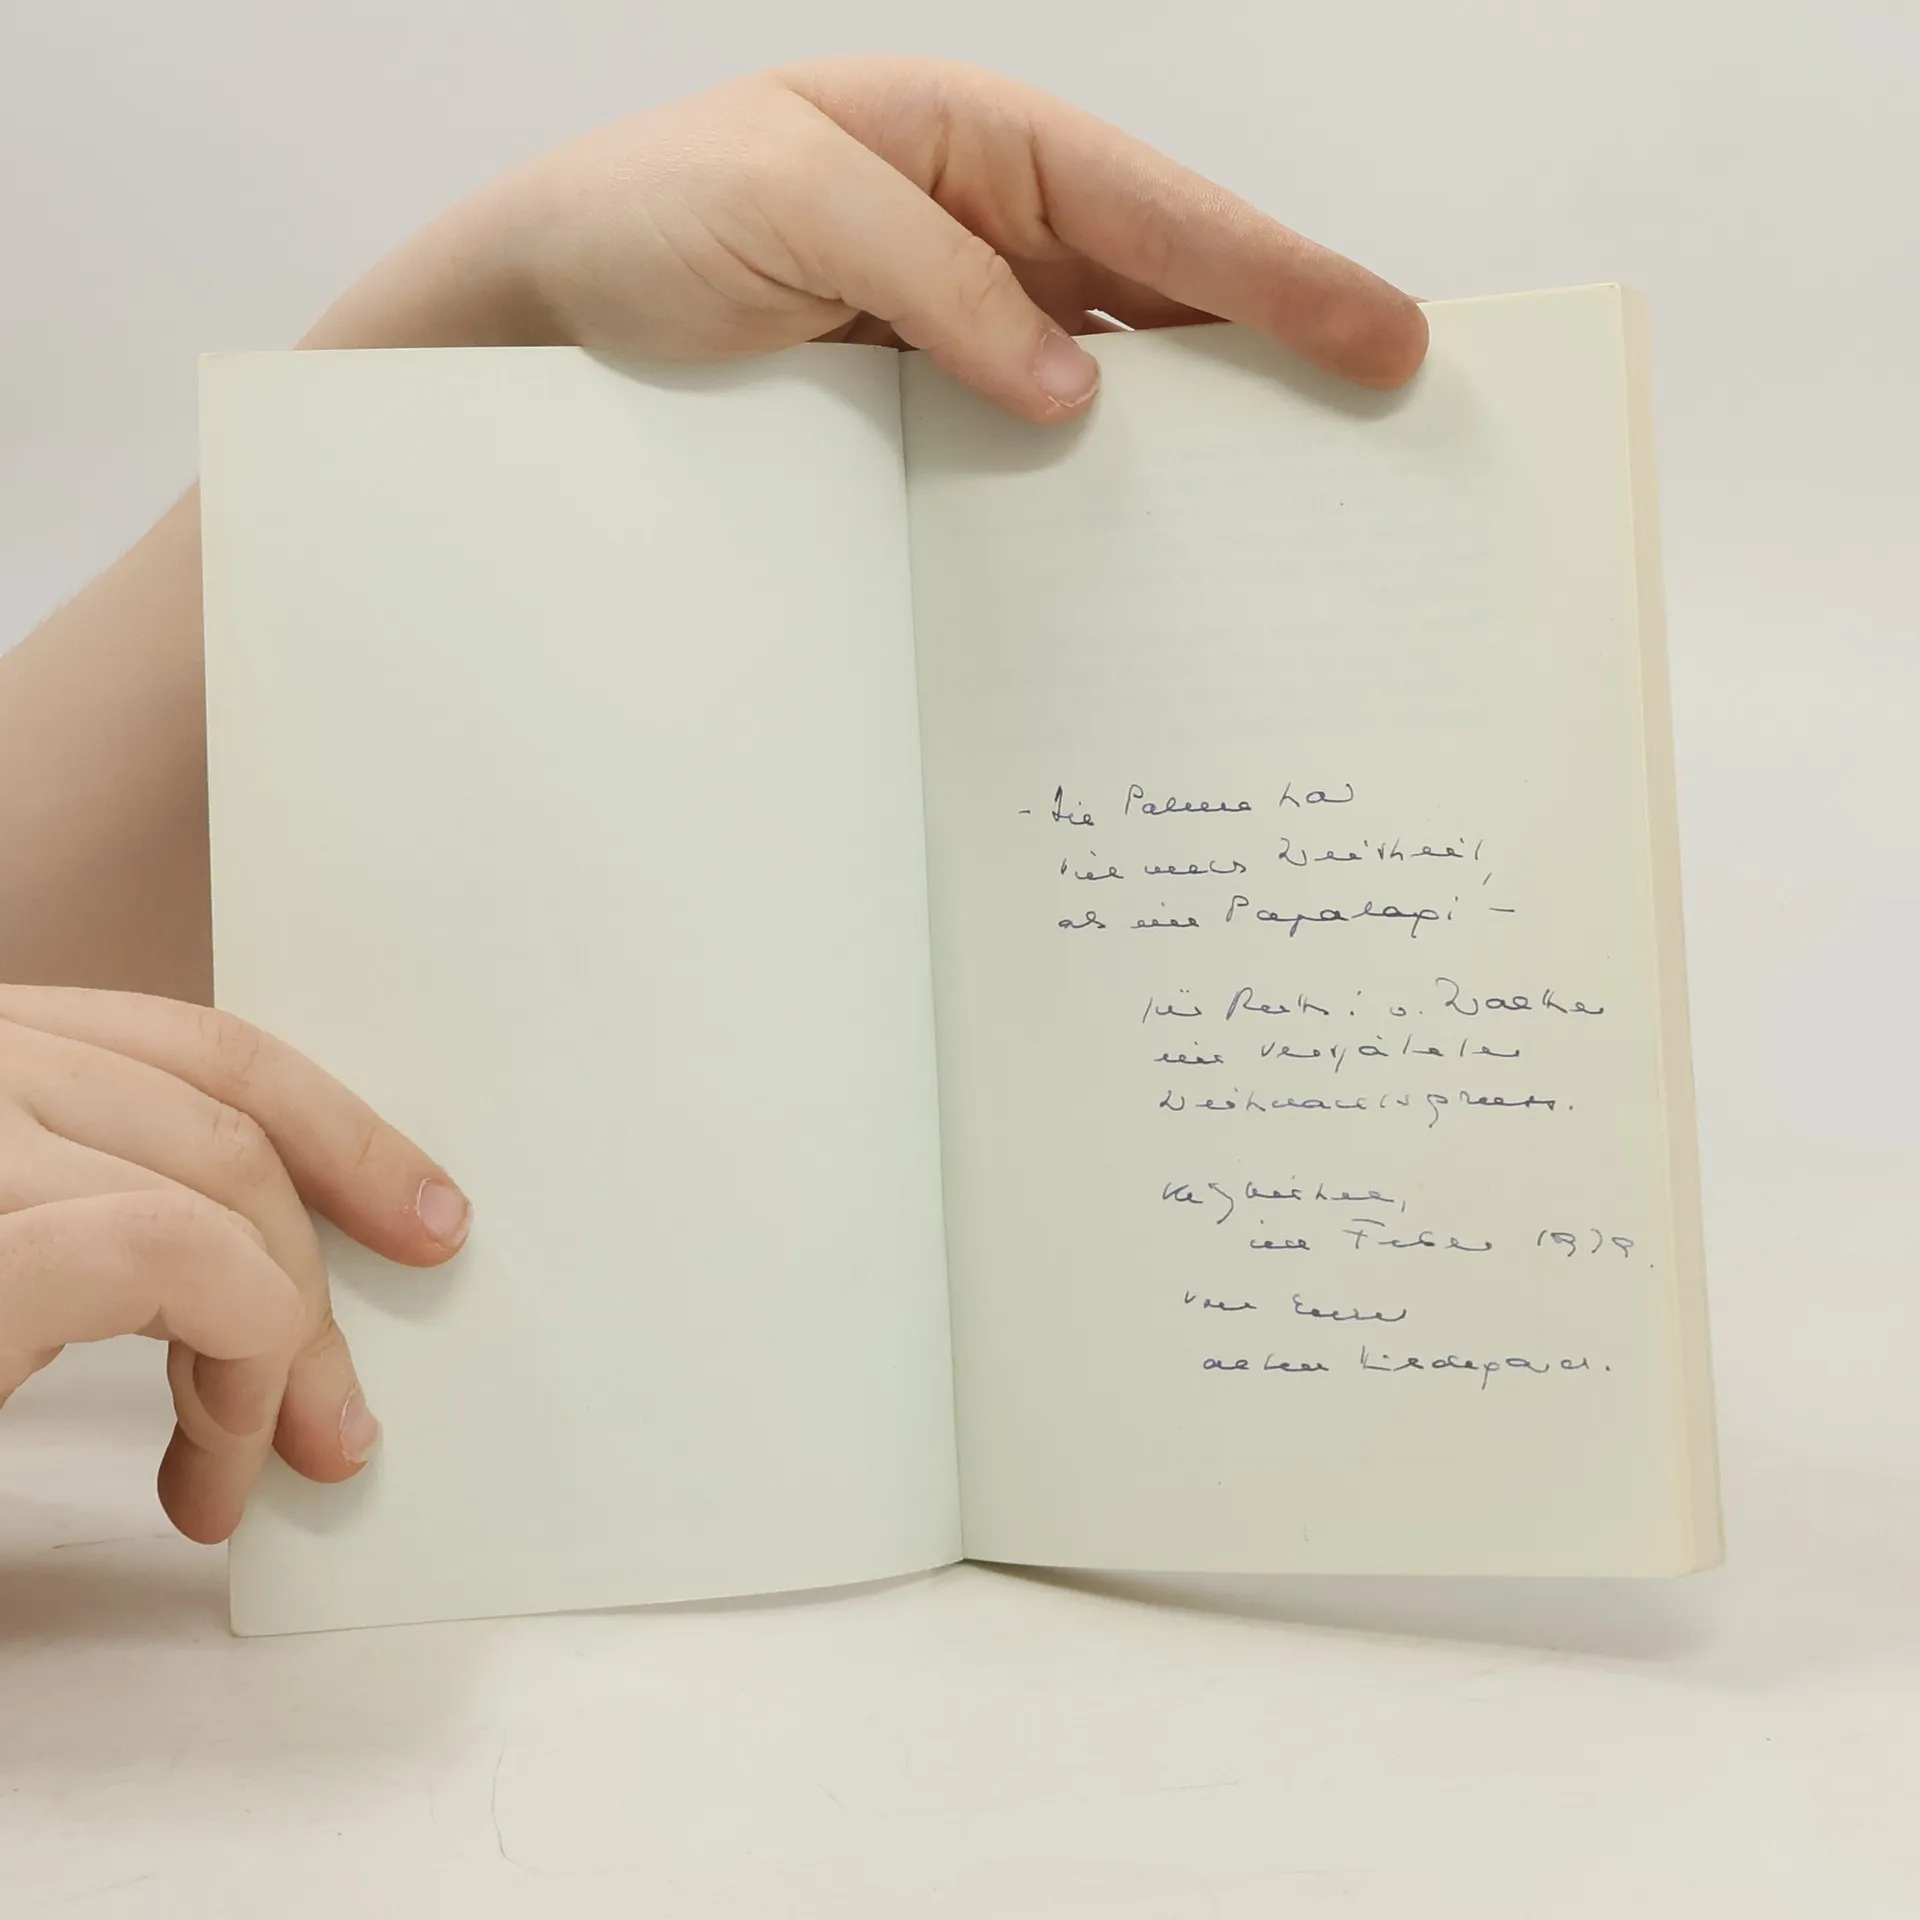 - Die Palme hat
viel mehr Weisheit,
als ein Papalagi -
für Ruth u. Walter
ein verspäteter
Weihnachtsgruss.
im Feber 1979.
von Eurer
alten Hildegard.